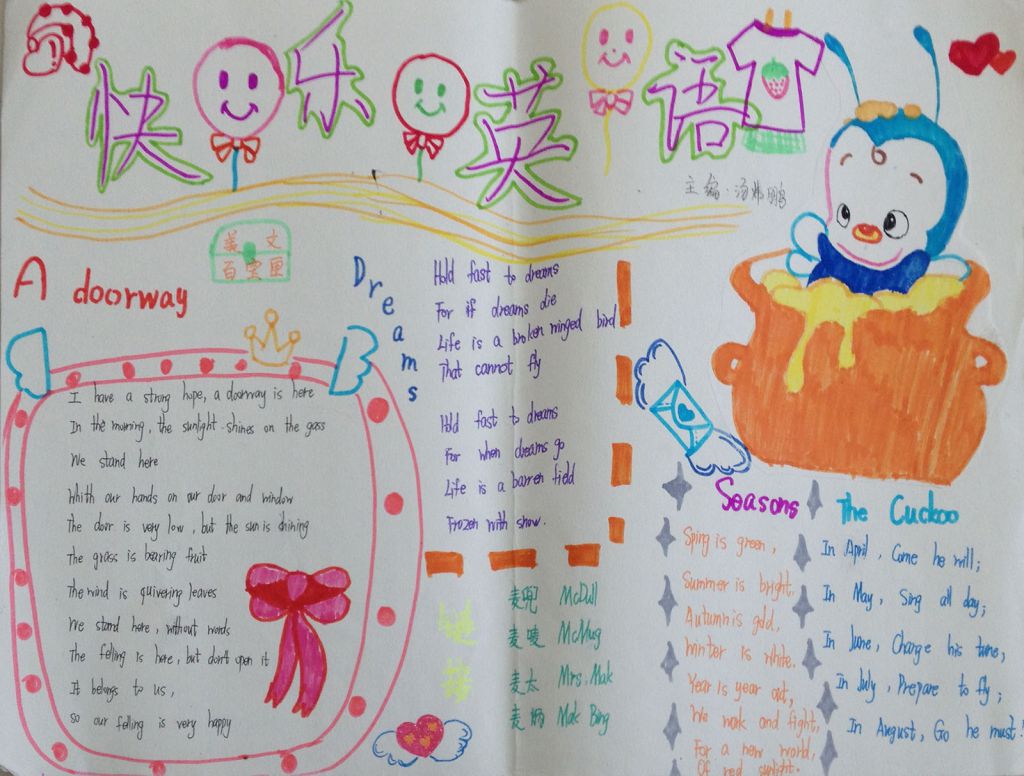 快乐英语
主编:汤
英文
百宝匣
A doorway
I have a strong hope, a doorway is here
In the morning, the sunlight shines on the gass
We stand here
Whith our hands on our door and window
The door is very low, but the sun is shining
The grass is bearing fruit
The wind is quivering leaves
We stand here, without words
The felling is here, but don't open it
It belongs to us,
so our felling is very happy
Dreams
Hold fast to dreams
For if dreams die
Life is a broken winged bird
That cannot fly
Hold fast to dreams
For when dreams go
Life is a barren field
Frozen with snow.
麦兜 McDull
麦唛 McMug
麦太 Mrs. Mak
麦炳 Mak Bing
Seasons
Sping is green,
Summer is bright,
Autumn is gold,
Winter is white.
Year is year out,
We work and fight,
For a new world,
Of red sunlight.
The Cuckoo
In April, Come he will;
In May, Sing all day;
In June, Change his tune;
In July, Prepare to fly;
In August, Go he must!